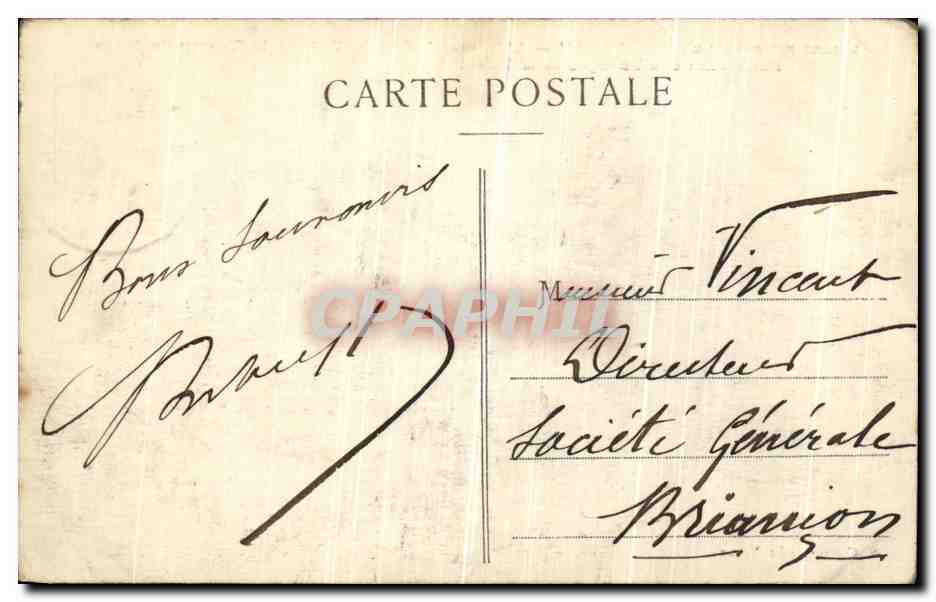 CARTE POSTALE
Bons souvenirs
Monsieur Vincent
Directeur
Société Générale
Briançon
CPAPHIL